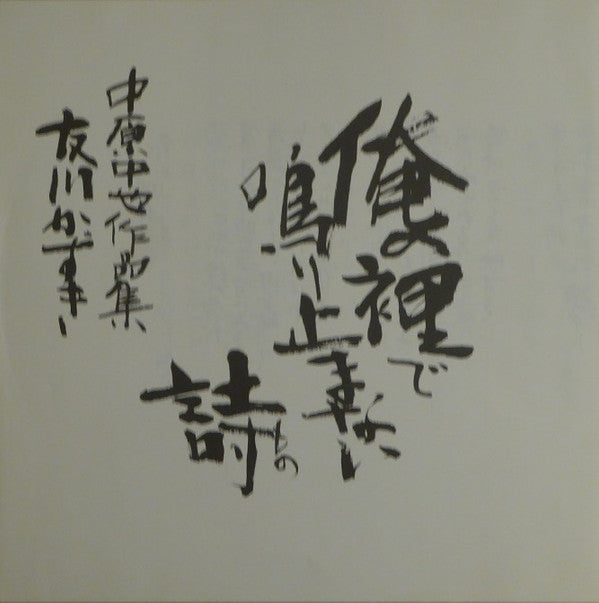 俺の裡で
鳴り止まない
詩
もの
中原中也作品集
友川かずき